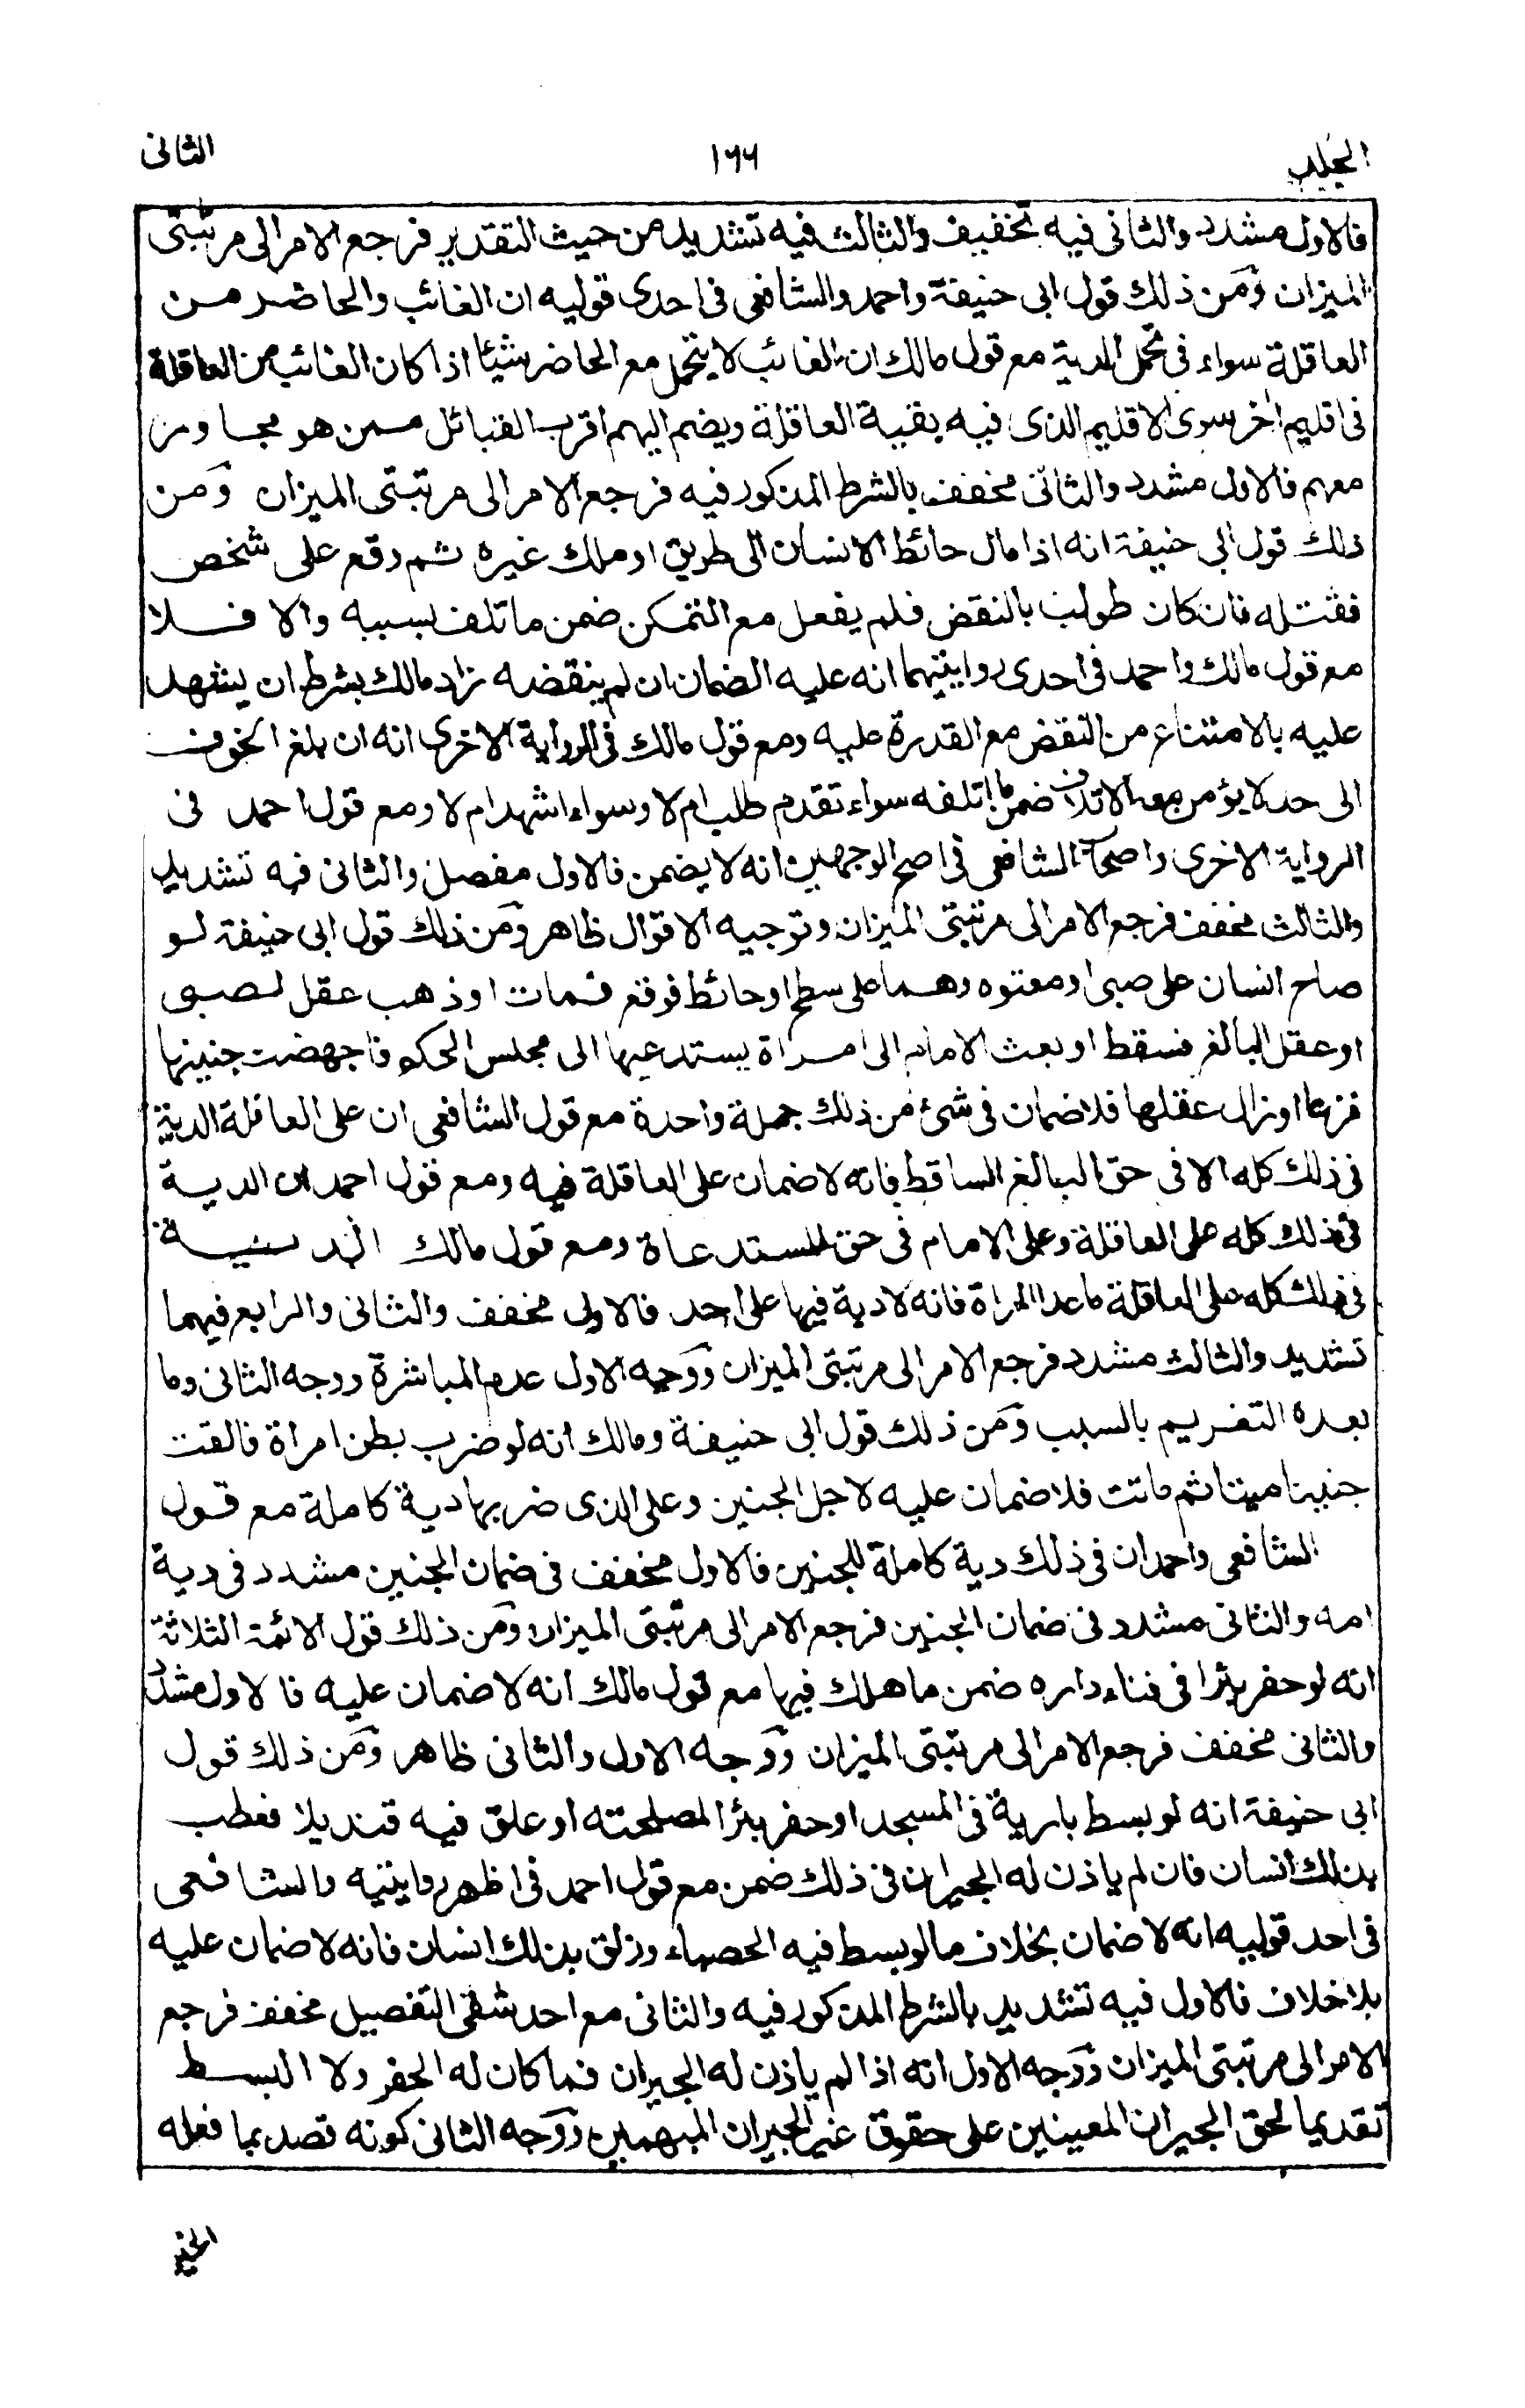 الجلد ١٦٦ الثانى
فالاول مشدد والثانى فيه تخفيف والثالث فيه تشديد من حيث التقدير فرجع الامر الى مرتبتى
الميزان ومن ذلك قول ابى حنيفة واحمد والشافعى فى احدى قوليه ان الغائب والحاضر من
العاقلة سواء فى تحمل الدية مع قول مالك ان الغائب لا يتحمل مع الحاضر شيئا اذا كان الغائب من العاقلة
فى اقليم اخر سوى الاقليم الذى فيه بقية العاقلة ويضم اليهم اقرب القبائل ممن هو مجاور من
معهم فالاول مشدد والثانى مخفف بالشرط المذكور فيه فرجع الامر الى مرتبتى الميزان ومن
ذلك قول ابى حنيفة انه اذا مال حائط الانسان الى طريق او ملك غيره ثم وقع على شخص
فقتله فان كان طولب بالنقض فلم يفعل مع التمكن ضمن ما تلف بسببه والا فلا
مع قول مالك واحمد فى احدى روايتيهما انه عليه الضمان ان لم ينقضه زاد مالك بشرط ان يشهد
عليه بالامتناع من النقض مع القدرة عليه ومع قول مالك فى الرواية الاخرى انه ان بلغ الخوف
الى حد لا يؤمن معه الاتلاف ضمن ما اتلفه سواء تقدم طلب ام لا وسواء اشهد ام لا ومع قول احمد فى
الرواية الاخرى واصحاب الشافعى فى اصح الوجهين انه لا يضمن فالاول مفصل والثانى فيه تشديد
والثالث مخفف فرجع الامر الى مرتبتى الميزان وتوجيه الاقوال ظاهر ومن ذلك قول ابى حنيفة لو
صاح انسان على صبى او معتوه وهما على سطح او حائط فوقع فمات او ذهب عقل لصبى
او عقل البالغ فسقط او بعث الامام الى امراة يستدعيها الى مجلس الحكم فاجهضت جنينها
فزعا او زال عقلها فلا ضمان فى شئ من ذلك جملة واحدة مع قول الشافعى ان على العاقلة الدية
فى ذلك كله الا فى حق البالغ الساقط فانه لا ضمان على العاقلة فيه ومع قول احمد ان الدية
فى ذلك كله على العاقلة وعلى الامام فى حق المستدعاة ومع قول مالك الدية
فى ذلك كله على العاقلة ما عدا المراة فانه لا دية فيها على احد فالاول مخفف والثانى والرابع فيهما
تشديد والثالث مشدد فرجع الامر الى مرتبتى الميزان ووجه الاول عدم المباشرة ووجه الثانى وما
بعده التغريم بالسبب ومن ذلك قول ابى حنيفة ومالك انه لو ضرب بطن امراة فالقت
جنينا ميتا ثم ماتت فلا ضمان عليه لاجل الجنين وعلى الذى ضربها دية كاملة مع قول
الشافعى واحمد ان فى ذلك دية كاملة للجنين فالاول مخفف فى ضمان الجنين مشدد فى دية
امه والثانى مشدد فى ضمان الجنين فرجع الامر الى مرتبتى الميزان ومن ذلك قول الائمة الثلاثة
انه لو حفر بئرا فى فناء داره ضمن ما هلك فيها مع قول مالك انه لا ضمان عليه فالاول مشدد
والثانى مخفف فرجع الامر الى مرتبتى الميزان ووجه الاول والثانى ظاهر ومن ذلك قول
ابى حنيفة انه لو بسط بارية فى المسجد او حفر بئرا لمصلحته او علق فيه قنديلا فعطب
بذلك انسان فان لم ياذن له الجيران فى ذلك ضمن مع قول احمد فى اظهر روايتيه والشافعى
فى احد قوليه انه لا ضمان بخلاف ما لو بسط فيه الحصباء وزلق بذلك انسان فانه لا ضمان عليه
بلا خلاف فالاول فيه تشديد بالشرط المذكور فيه والثانى مع احد شقى التفصيل مخفف فرجع
الامر الى مرتبتى الميزان ووجه الاول انه اذا لم ياذن له الجيران فما كان له الحفر ولا البسط
تقديما لحق الجيران المعينين على حقوق غير الجيران المبهمين ووجه الثانى كونه قصد بما فعله
الخير